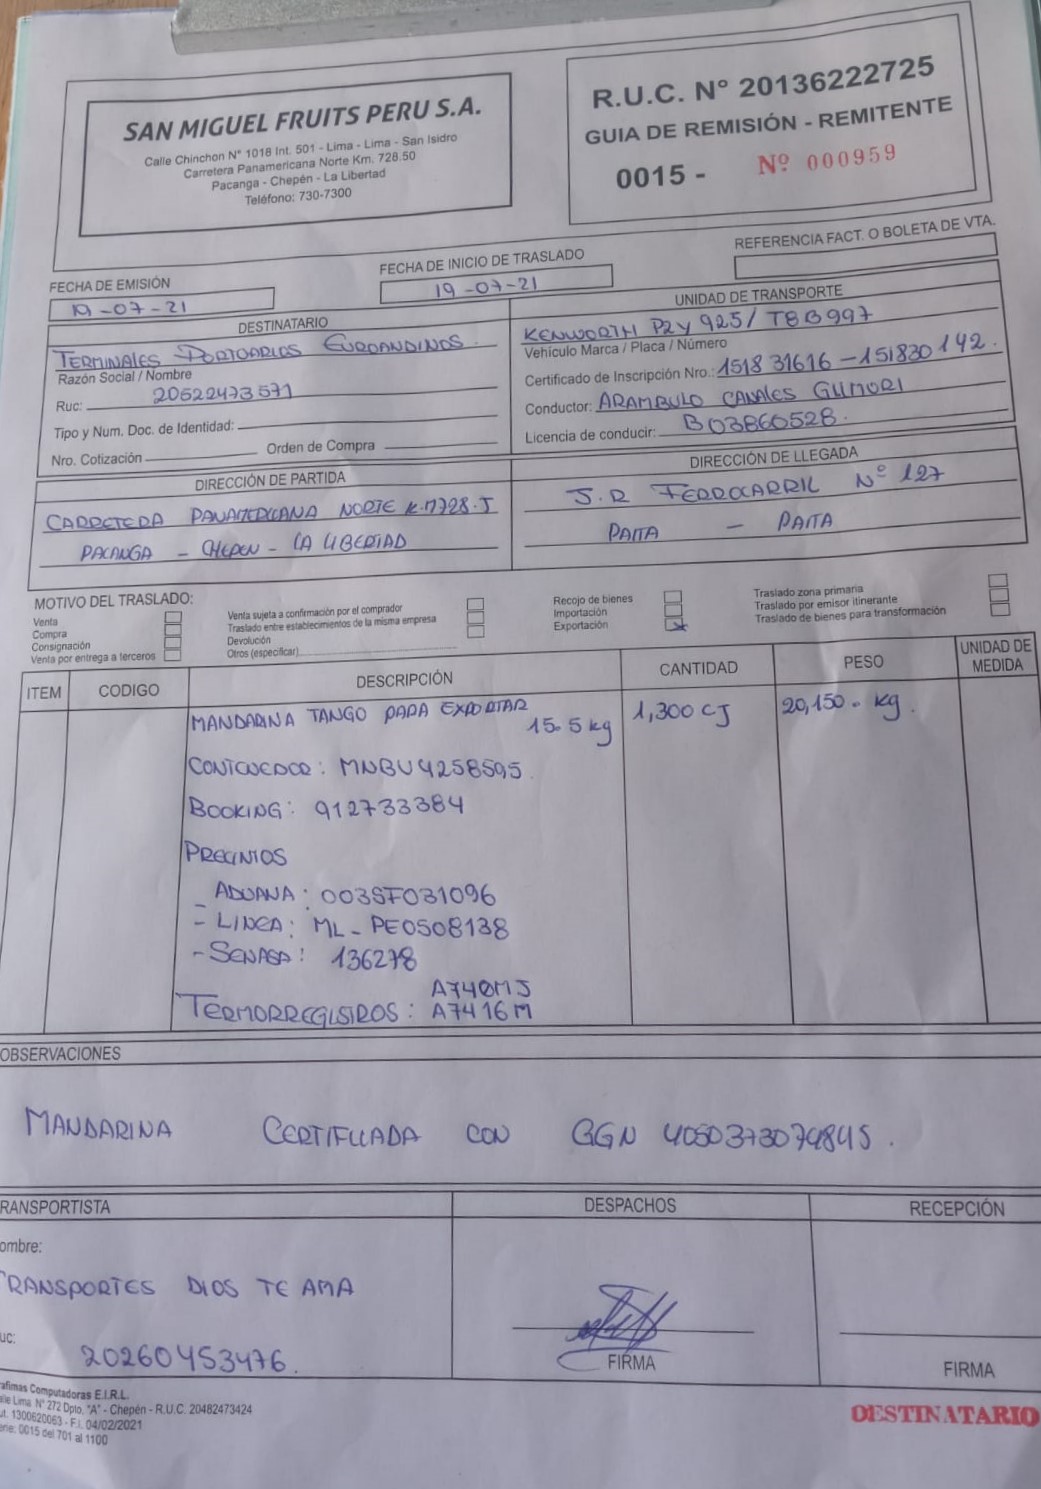 SAN MIGUEL FRUITS PERU S.A.
Calle Chinchon N° 1018 Int. 501 - Lima - Lima - San Isidro
Carretera Panamericana Norte Km. 728.50
Pacanga - Chepén - La Libertad
Teléfono: 730-7300
R.U.C. N° 20136222725
GUIA DE REMISIÓN - REMITENTE
0015 - Nº 000959
FECHA DE EMISIÓN
19-07-21
FECHA DE INICIO DE TRASLADO
19-07-21
REFERENCIA FACT. O BOLETA DE VTA.
DESTINATARIO
TERMINALES PORTUARIOS EUROANDINOS
Razón Social / Nombre
Ruc: 20522473571
Tipo y Num. Doc. de Identidad:
Nro. Cotización Orden de Compra
UNIDAD DE TRANSPORTE
KENWORTH P2Y 925 / T8B997
Vehículo Marca / Placa / Número
Certificado de Inscripción Nro.: 151831616 - 151830142.
Conductor: ARAMBULO CANALES GUMORI
Licencia de conducir: B03860528.
DIRECCIÓN DE PARTIDA
CARRETERA PANAMERICANA NORTE K.M728.5
PACANGA - CHEPEN - LA LIBERTAD
DIRECCIÓN DE LLEGADA
J.R FERROCARRIL Nº 127
PAITA - PAITA
MOTIVO DEL TRASLADO:
Venta
Compra
Consignación
Venta por entrega a terceros
Venta sujeta a confirmación por el comprador
Traslado entre establecimientos de la misma empresa
Devolución
Otros (especificar)
Recojo de bienes
Importación
Exportación x
Traslado zona primaria
Traslado por emisor itinerante
Traslado de bienes para transformación
ITEM CODIGO DESCRIPCIÓN CANTIDAD PESO UNIDAD DE MEDIDA
MANDARINA TANGO PARA EXPORTAR 1,300 CJ 20,150. kg.
15.5 kg
CONTENEDOR: MNBU4258595.
BOOKING: 912733384
PRECINTOS
- ADUANA: 003SF031096
- LINEA: ML-PE0508138
- SENASA: 136278
A740MJ
TERMORREGISTROS: A7416M
OBSERVACIONES
MANDARINA CERTIFICADA CON GGN 4050373074845.
RANSPORTISTA
ombre:
TRANSPORTES DIOS TE AMA
uc:
20260453476.
DESPACHOS
FIRMA
RECEPCIÓN
FIRMA
afimas Computadoras E.I.R.L.
alle Lima N° 272 Dpto. "A" - Chepén - R.U.C. 20482473424
ut. 1300620063 - F.I. 04/02/2021
erie: 0015 del 701 al 1100
DESTINATARIO